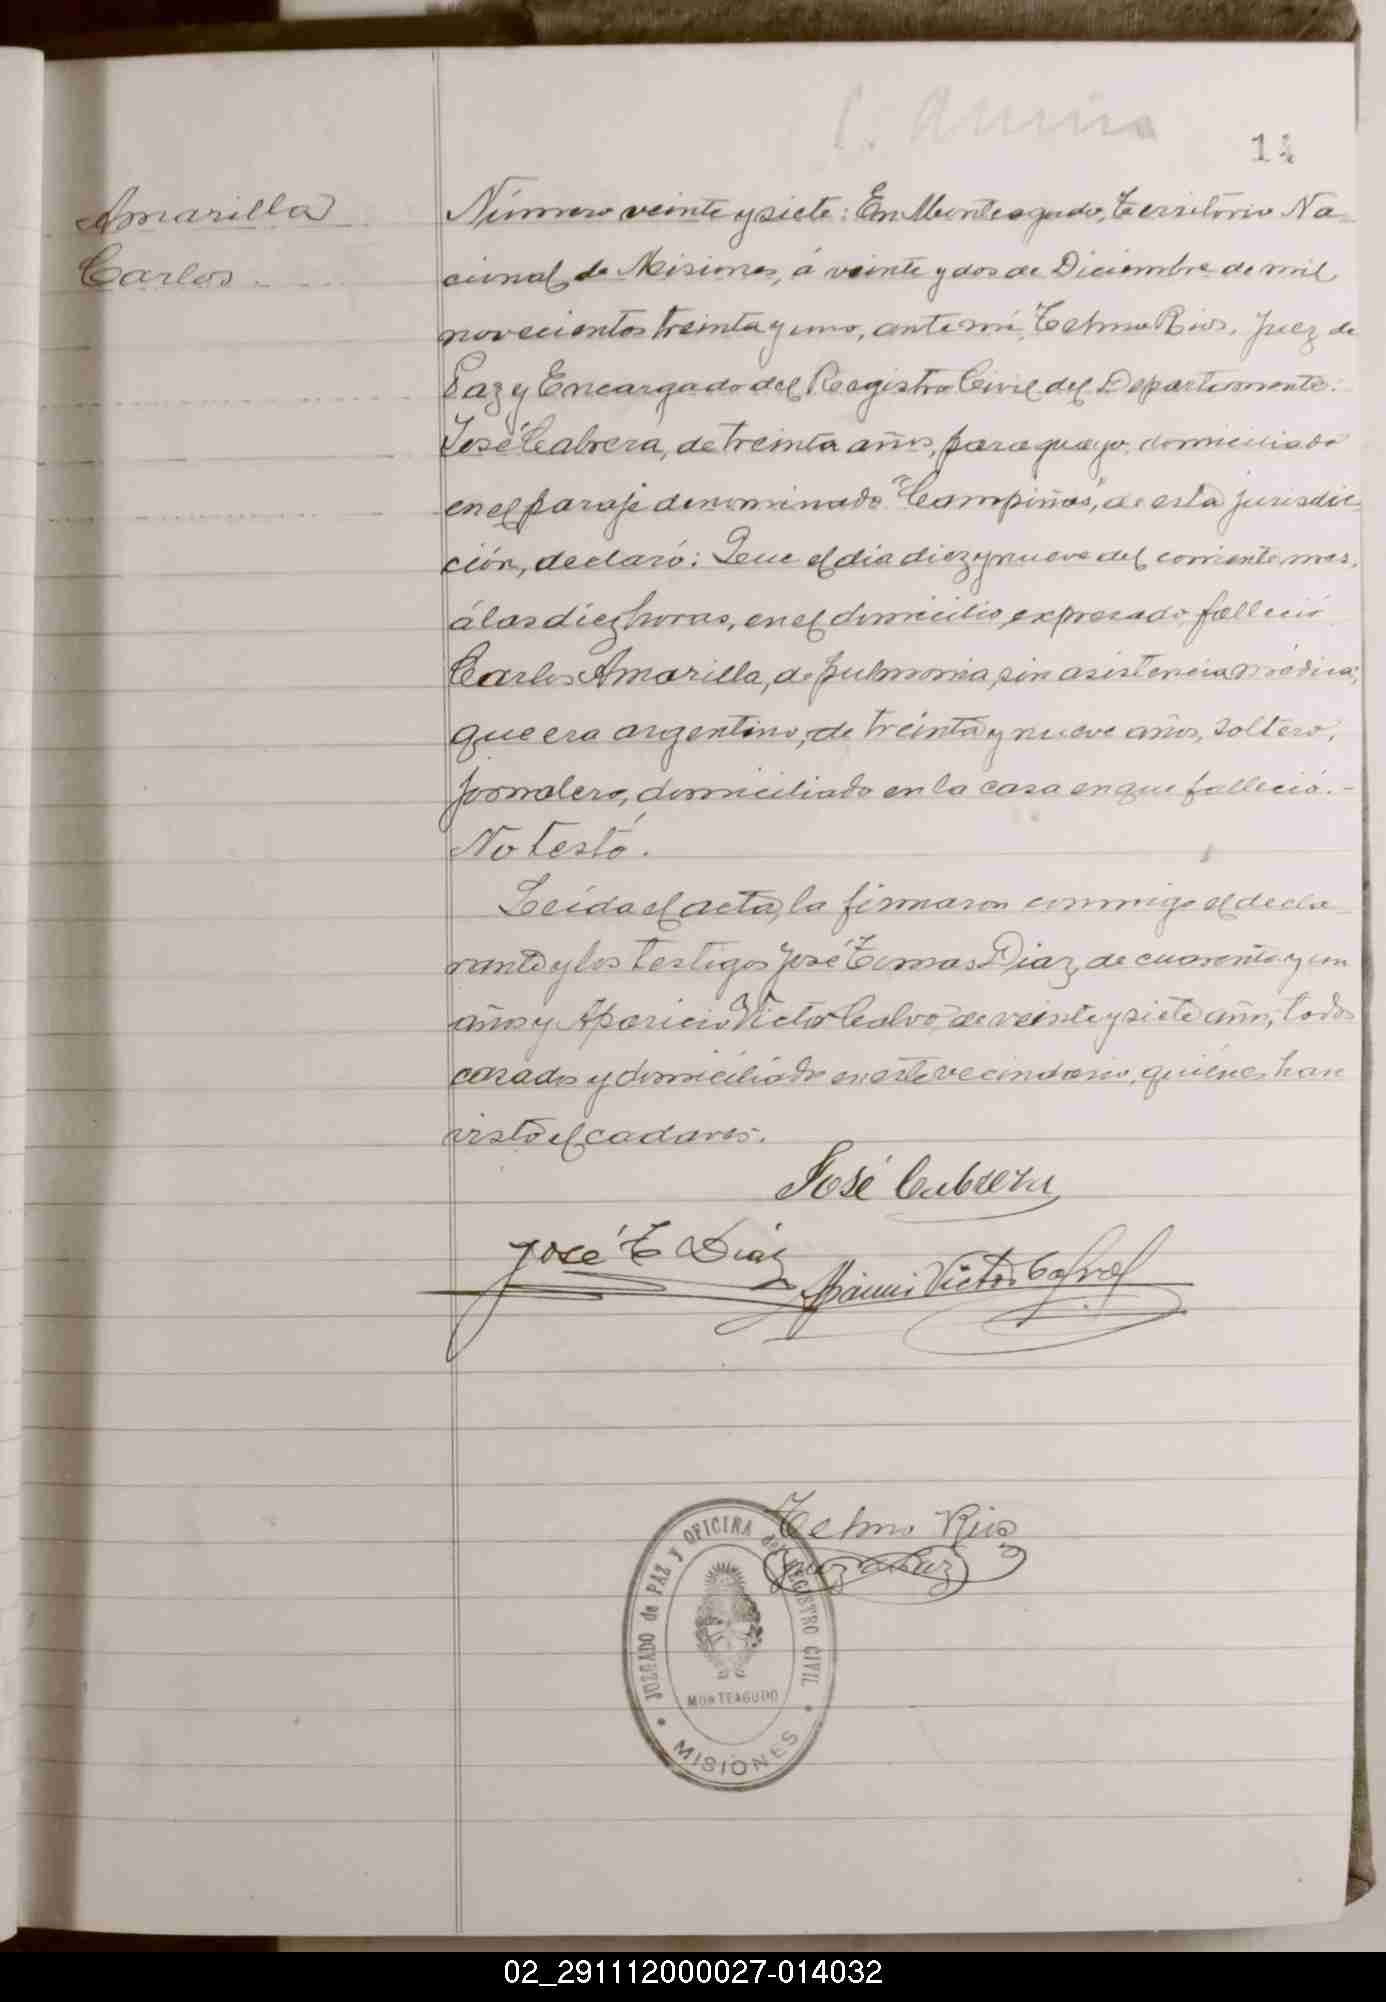 14
Amarilla
Carlos
Número veinte y siete: En Monteagudo, Territorio Na-
cional de Misiones, á veinte y dos de Diciembre de mil
novecientos treinta y uno, ante mí, Telmo Rios, Juez de
Paz y Encargado del Registro Civil del Departamento:
José Cabrera, de treinta años, paraguayo, domiciliado
en el paraje denominado "Campiñas", de esta jurisdic-
ción, declaró: Que el dia diez y nueve del corriente mes,
á las diez horas, en el domicilio expresado falleció
Carlos Amarilla, de pulmonia, sin asistencia médica;
que era argentino, de treinta y nueve años, soltero,
jornalero, domiciliado en la casa en que falleció.-
No testó.
Leída el acta, la firmaron conmigo el decla-
rante y los testigos José Tomas Diaz, de cuarenta y un
años y Aparicio Victor Calvo, de veinte y siete años, todos
casados y domiciliados en este vecindario, quiénes han
visto el cadaver.
José Cabrera
José T Diaz
Victor
Telmo Rios
Juez de Paz
JUZGADO de PAZ y OFICINA del REGISTRO CIVIL
MONTEAGUDO
MISIONES
02_291112000027-014032